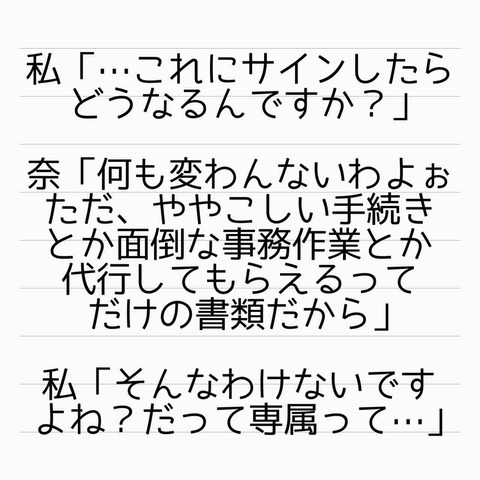 私「…これにサインしたら
どうなるんですか？」
奈「何も変わんないわよぉ
ただ、ややこしい手続き
とか面倒な事務作業とか
代行してもらえるって
だけの書類だから」
私「そんなわけないです
よね？だって専属って…」